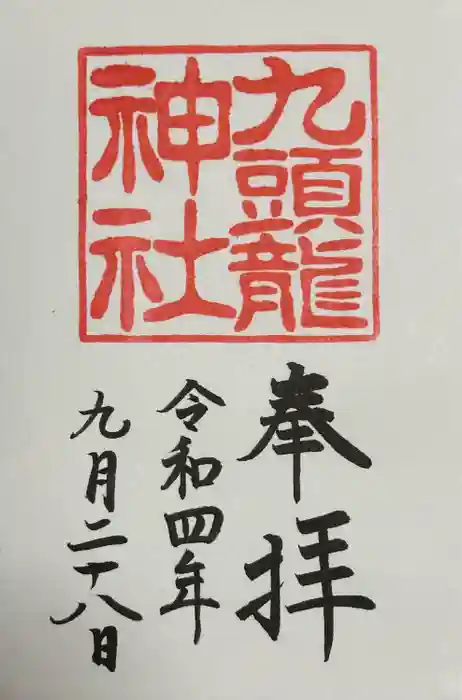 九頭龍
神社
奉拝
令和四年
九月二十八日